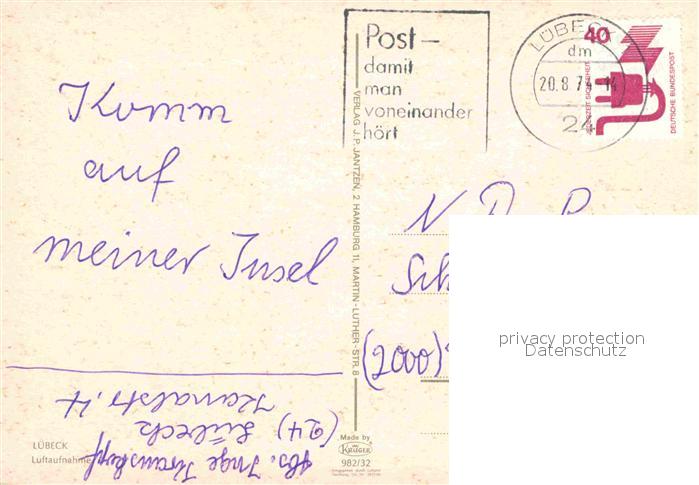 Komm
auf
meiner Insel
Post –
damit
man
voneinander
hört
LÜBECK
dm
20.8.74-14
24
40
JEDERZEIT SICHERHEIT
DEUTSCHE BUNDESPOST
VERLAG J. P. JANTZEN, 2 HAMBURG 11, MARTIN-LUTHER-STR. 8
N D R
Sch
(2000)
privacy protection
Datenschutz
Abs. Inge
(24) Lübeck
Kanalstr. 14
LÜBECK
Luftaufnahme
Made by
KRÜGER
982/32